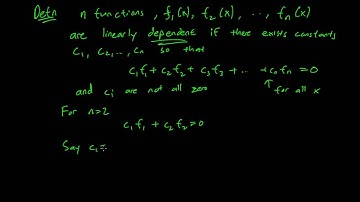 Defn n functions, f₁(x), f₂(x), ..., fₙ(x)
are linearly dependent if there exists constants
c₁, c₂, ..., cₙ so that
c₁f₁ + c₂f₂ + c₃f₃ + ... + cₙfₙ = 0
and cᵢ are not all zero ↑ for all x
For n=2
c₁f₁ + c₂f₂ = 0
Say c₁ =